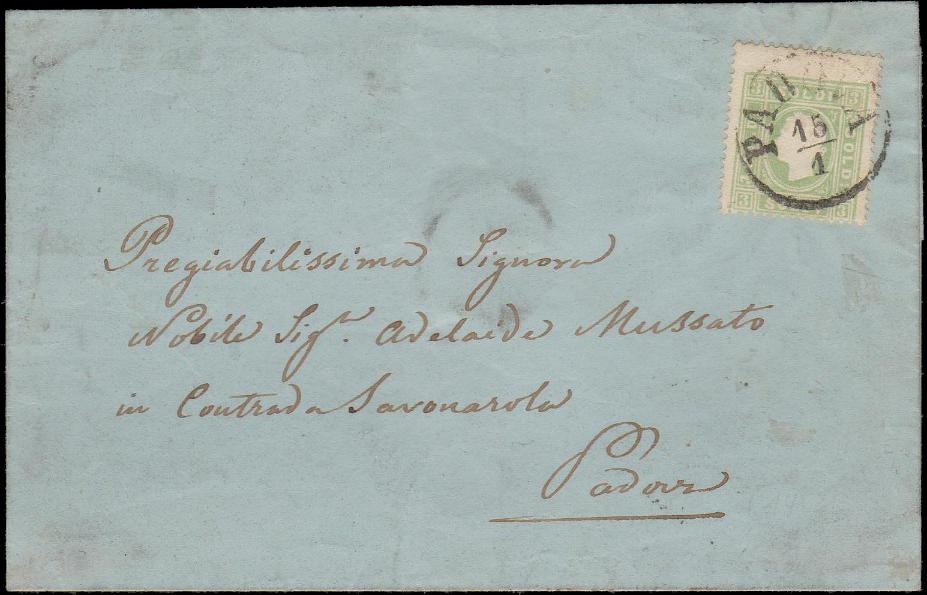 PADOVA
15
1
3 SOLDI 3
SOLDI
3 SOLDI 3
Pregiabilissima Signora
Nobile Sigra. Adelaide Mussato
in Contrada Savonarola
Padova